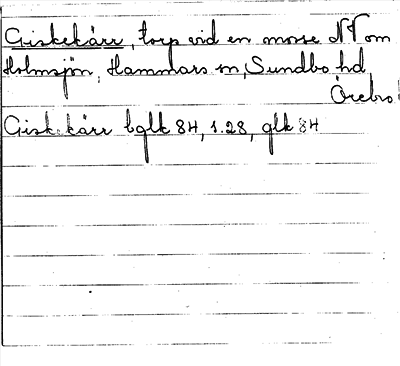 Giskekärr, torp vid en mosse NV om
Holmsjön, Hammars sn, Sundbo hd
Örebro l
Giskekärr bglk 84, 1.28, glk 84